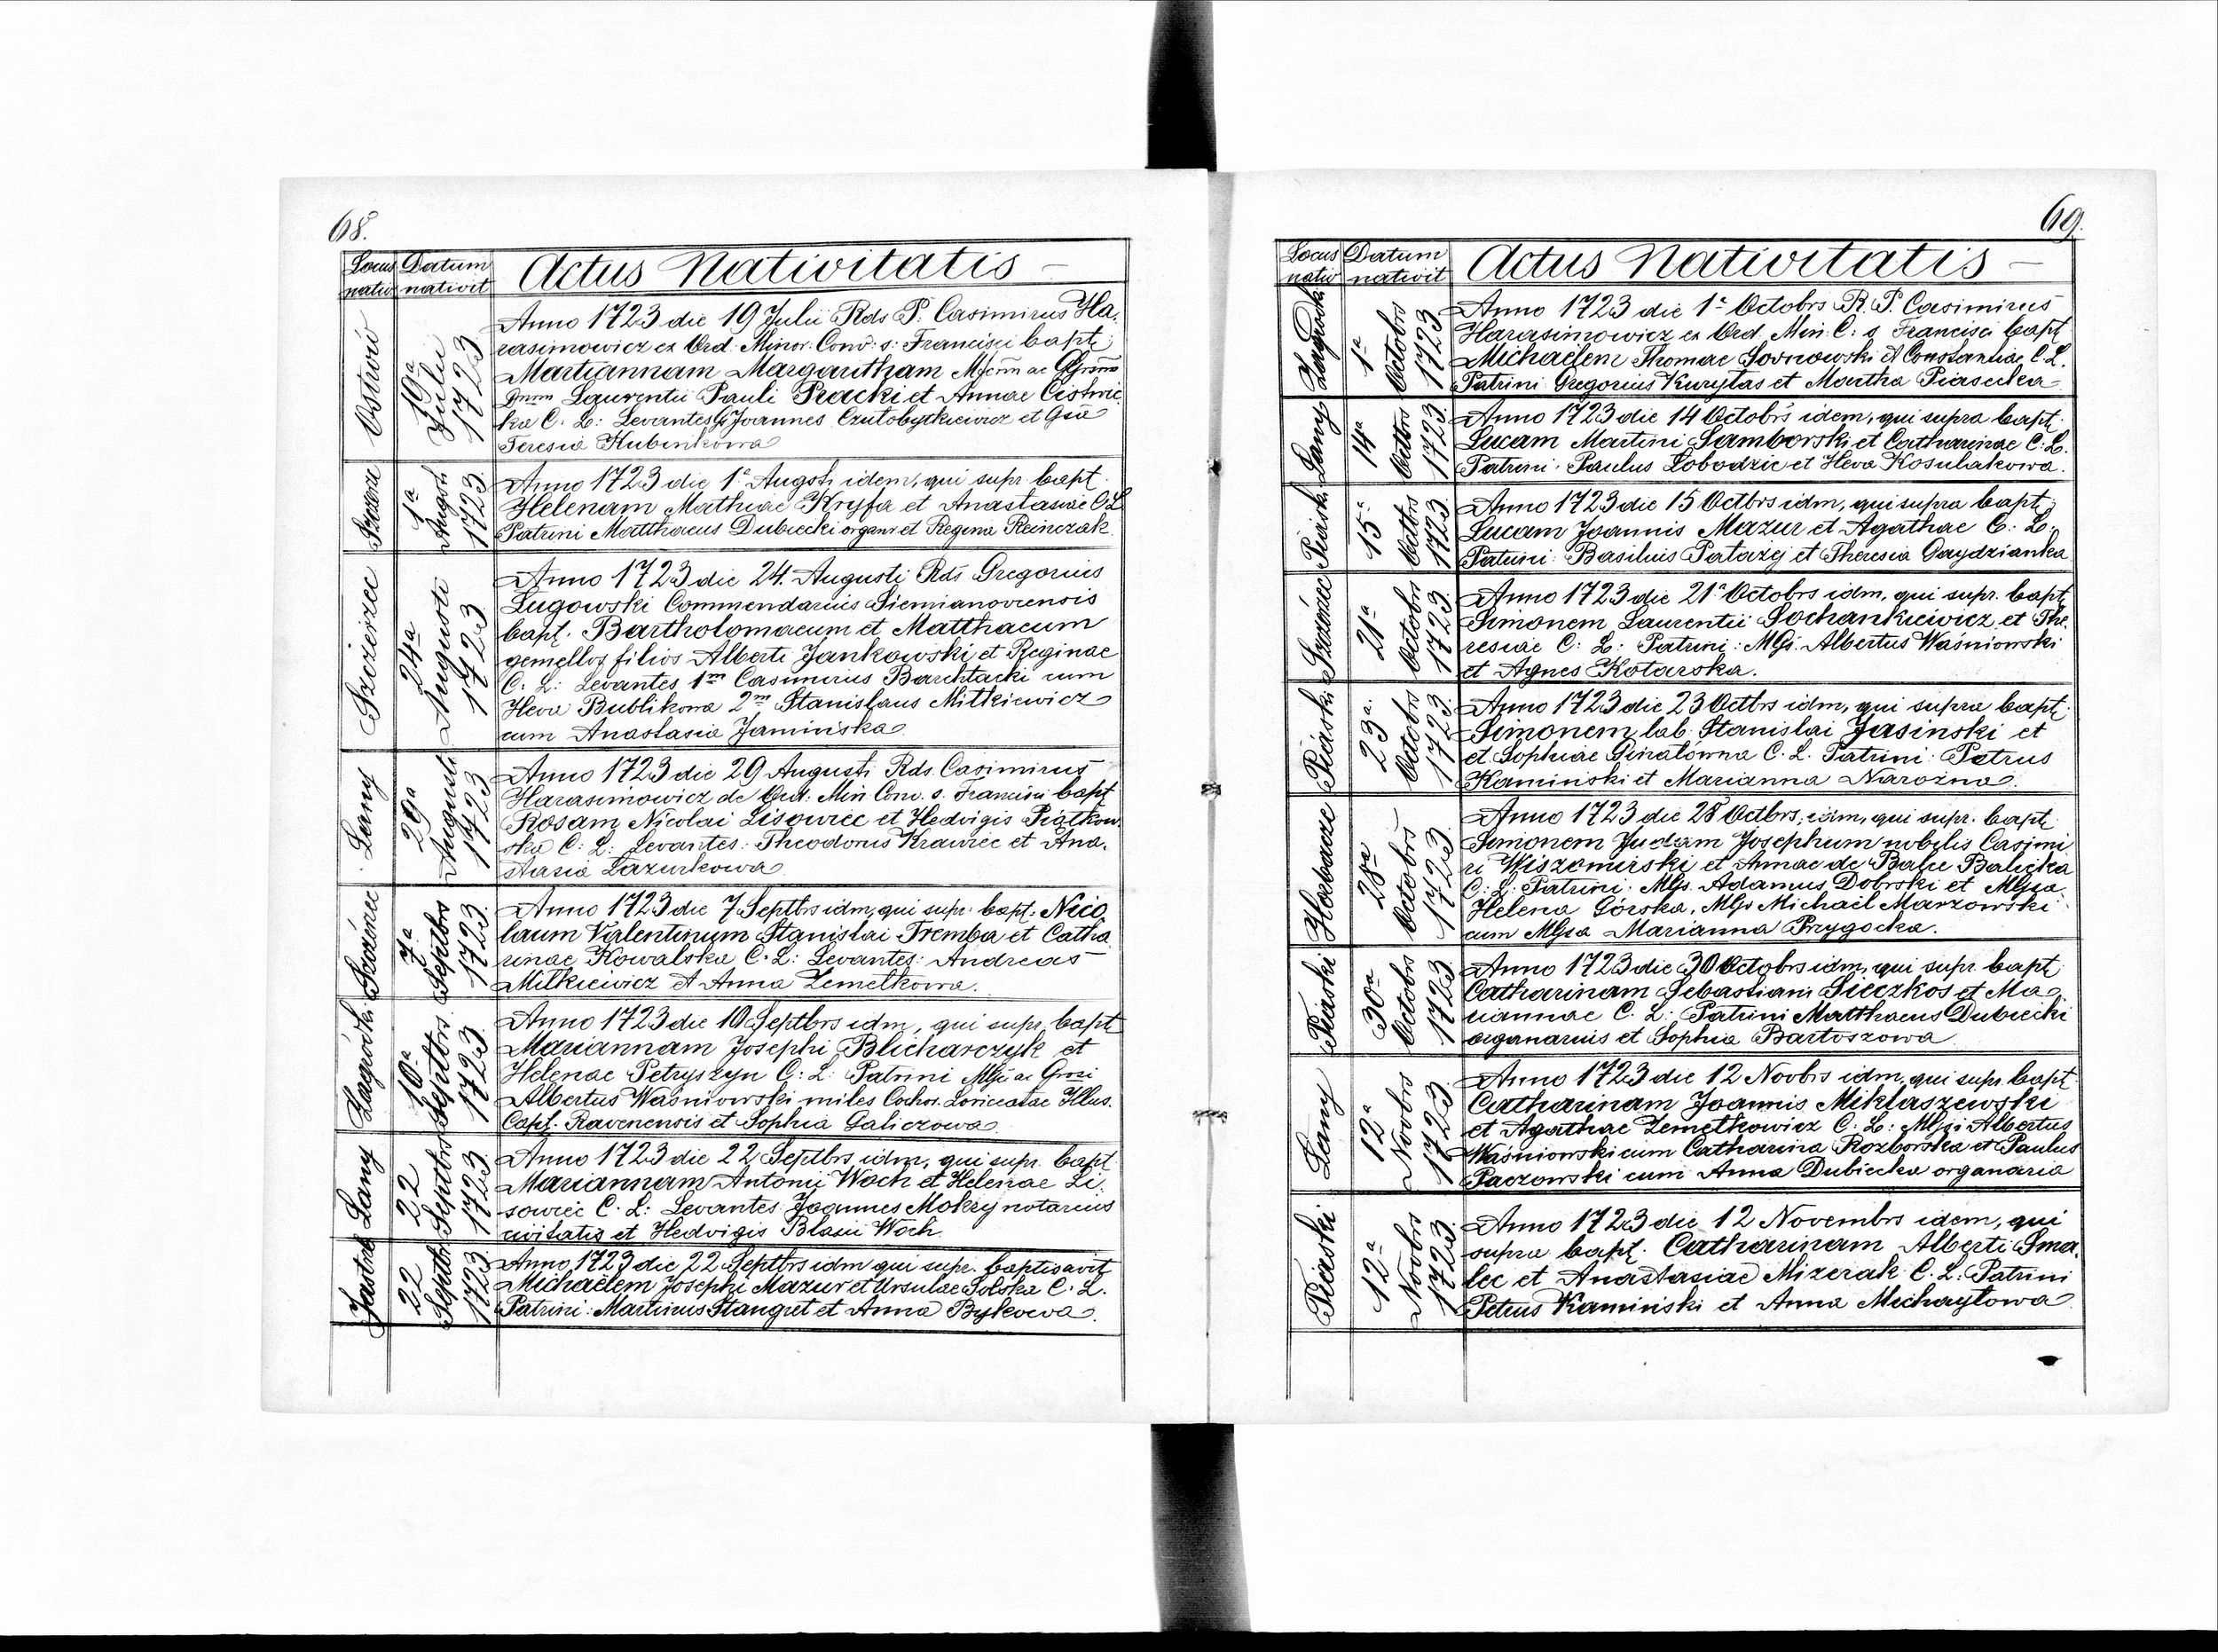 68.
Locus nativ
Datum nativit
Actus Nativitatis
Ostrów
19a Julii 1723
Anno 1723 die 19 Julii Rds P. Casimirus Ha.
rasimowicz ex Ord. Minor. Conv: s. Francisci bapt.
Mariannam Margaritham
Laurentii Pauli Pracki et Annae Cistwic
ka C. L: Levantes Joannes Czutobytkiewicz et
Teresia Hubinkowa
1a Augsti 1723.
Anno 1723 die 1a Augsti idem, qui supr. bapt.
Helenam Mathiae Kryfa et Anastasiae C L
Patrini Matthaeus Dubiecki organ: et Regina Reinczak
Szczerzec
24a Augusti 1723
Anno 1723 die 24. Augusti Rds Gregorius
Ługowski Commendarius Siemianoviensis
bapt. Bartholomaeum et Matthaeum
gemellos filios Alberti Jankowski et Reginae
C. L: Levantes 1m Casimirus Barchtacki cum
Heva Bublikowa 2m Stanislaus Mitkiewicz
cum Anastasia Jaminska
Łany
29a Augusti 1723
Anno 1723 die 29 Augusti Rds. Casimirus
Harasimowicz de Ord: Min Conv. s. Francisci bapt
Rosam Nicolai Lisowiec et Hedvigis Piątkow
ska C: L: Levantes: Theodorus Krawiec et Ana.
stasia Łazurkowa
7a Septbrs 1723
Anno 1723 die 7 Septbrs idm, qui supr. bapt. Nico
laum Valentinum Stanislai Tremba et Catha
rinae Kowalska C. L: Levantes: Andreas
Mitkiewicz et Anna Zemełkowa.
Zagródki
10a Septbrs. 1723
Anno 1723 die 10 Septbrs idm, qui supr. bapt
Mariannam Josephi Blicharczyk et
Helenae Petryszyn C: L: Patrini Mgfi ac Grosi
Albertus Waśniowski miles Cohor. Loricatae Illus.
Capt. Ravenensis et Sophia Galiczowa
Łany
22 Septbrs 1723
Anno 1723 die 22 Septbrs idm, qui supr. bapt
Mariannam Antonii Woch et Helenae Li.
sowiec C. L: Levantes Joannes Mokry notarius
civitatis et Hedvigis Blasii Woch.
22 Septbr 1723
Anno 1723 die 22 Septbrs idm qui supr. baptisavit
Michaëlem Josephi Mazur et Ursulae Solska C. L.
Patrini: Martinus Stangret et Anna Bytkowa.
69.
Locus nativ
Datum nativit
Actus Nativitatis
Zagródki
1a Octobrs 1723
Anno 1723 die 1a Octobrs R. P. Casimirus
Harasimowicz ex Ord. Min. C: s. Francisci bapt
Michaëlem Thomae Sosnowski et Constantiae C. L.
Patrini Gregorius Kuryłas et Martha Piasecka
Łany
14a Octbrs 1723
Anno 1723 die 14 Octobrs idem, qui supra bapt.
Lucam Martini Samborski et Catharinae C: L.
Patrini: Paulus Łobodzic et Heva Kosulakowa.
Piaski
15a Octbrs 1723
Anno 1723 die 15 Octbrs idm, qui supra bapt.
Lucam Joannis Mazur et Agathae C: L:
Patrini: Basilius Patazej et Theresia Gaydzianka
21a Octobrs 1723.
Anno 1723 die 21a Octobrs idm, qui supr. bapt
Simonem Laurentii Sochankiewicz et The.
resiae C: L: Patrini: MGs. Albertus Waśniowski
et Agnes Kotarska.
Piaski
23a. Octobrs 1723.
Anno 1723 die 23 Octbrs idm, qui supra bapt.
Simonem lab. Stanislai Jasinski et
et Sophiae Ginałówna C. L. Patrini: Petrus
Kaminski et Marianna Narożna
Horbacze
28a Octobrs 1723
Anno 1723 die 28 Octbrs, idm, qui supr. bapt.
Simonem Judam Josephum nobilis Casimi
ri Wiszomirski et Annae de Balic Balicka
C: L: Patrini: MGs. Adamus Dobrski et MGsa
Helena Górska, MGs Michaël Marzowski
cum MGsa Marianna Przygocka.
Piaski
30a Octobrs 1723
Anno 1723 die 30 Octobrs idm, qui supr. bapt
Catharinam Sebastiani Sieczkos et Ma
riannae C. L: Patrini Matthaeus Dubiecki
organarius et Sophia Bartoszowa
Łany
12a Novbrs 1723
Anno 1723 die 12 Novbrs idm, qui supr. bapt
Catharinam Joannis Miklaszewski
et Agathae Zemełkowicz C. L: MGsi Albertus
Waśniowski cum Catharina Rozborska et Paulus
Paczowski cum Anna Dubiecka organaria
Piaski
12a Novbrs 1723.
Anno 1723 die 12 Novembrs idem, qui
supra bapt. Catharinam Alberti Sma.
lec et Anastasiae Mizerak C. L: Patrini
Petrus Kamiński et Anna Michayłowa